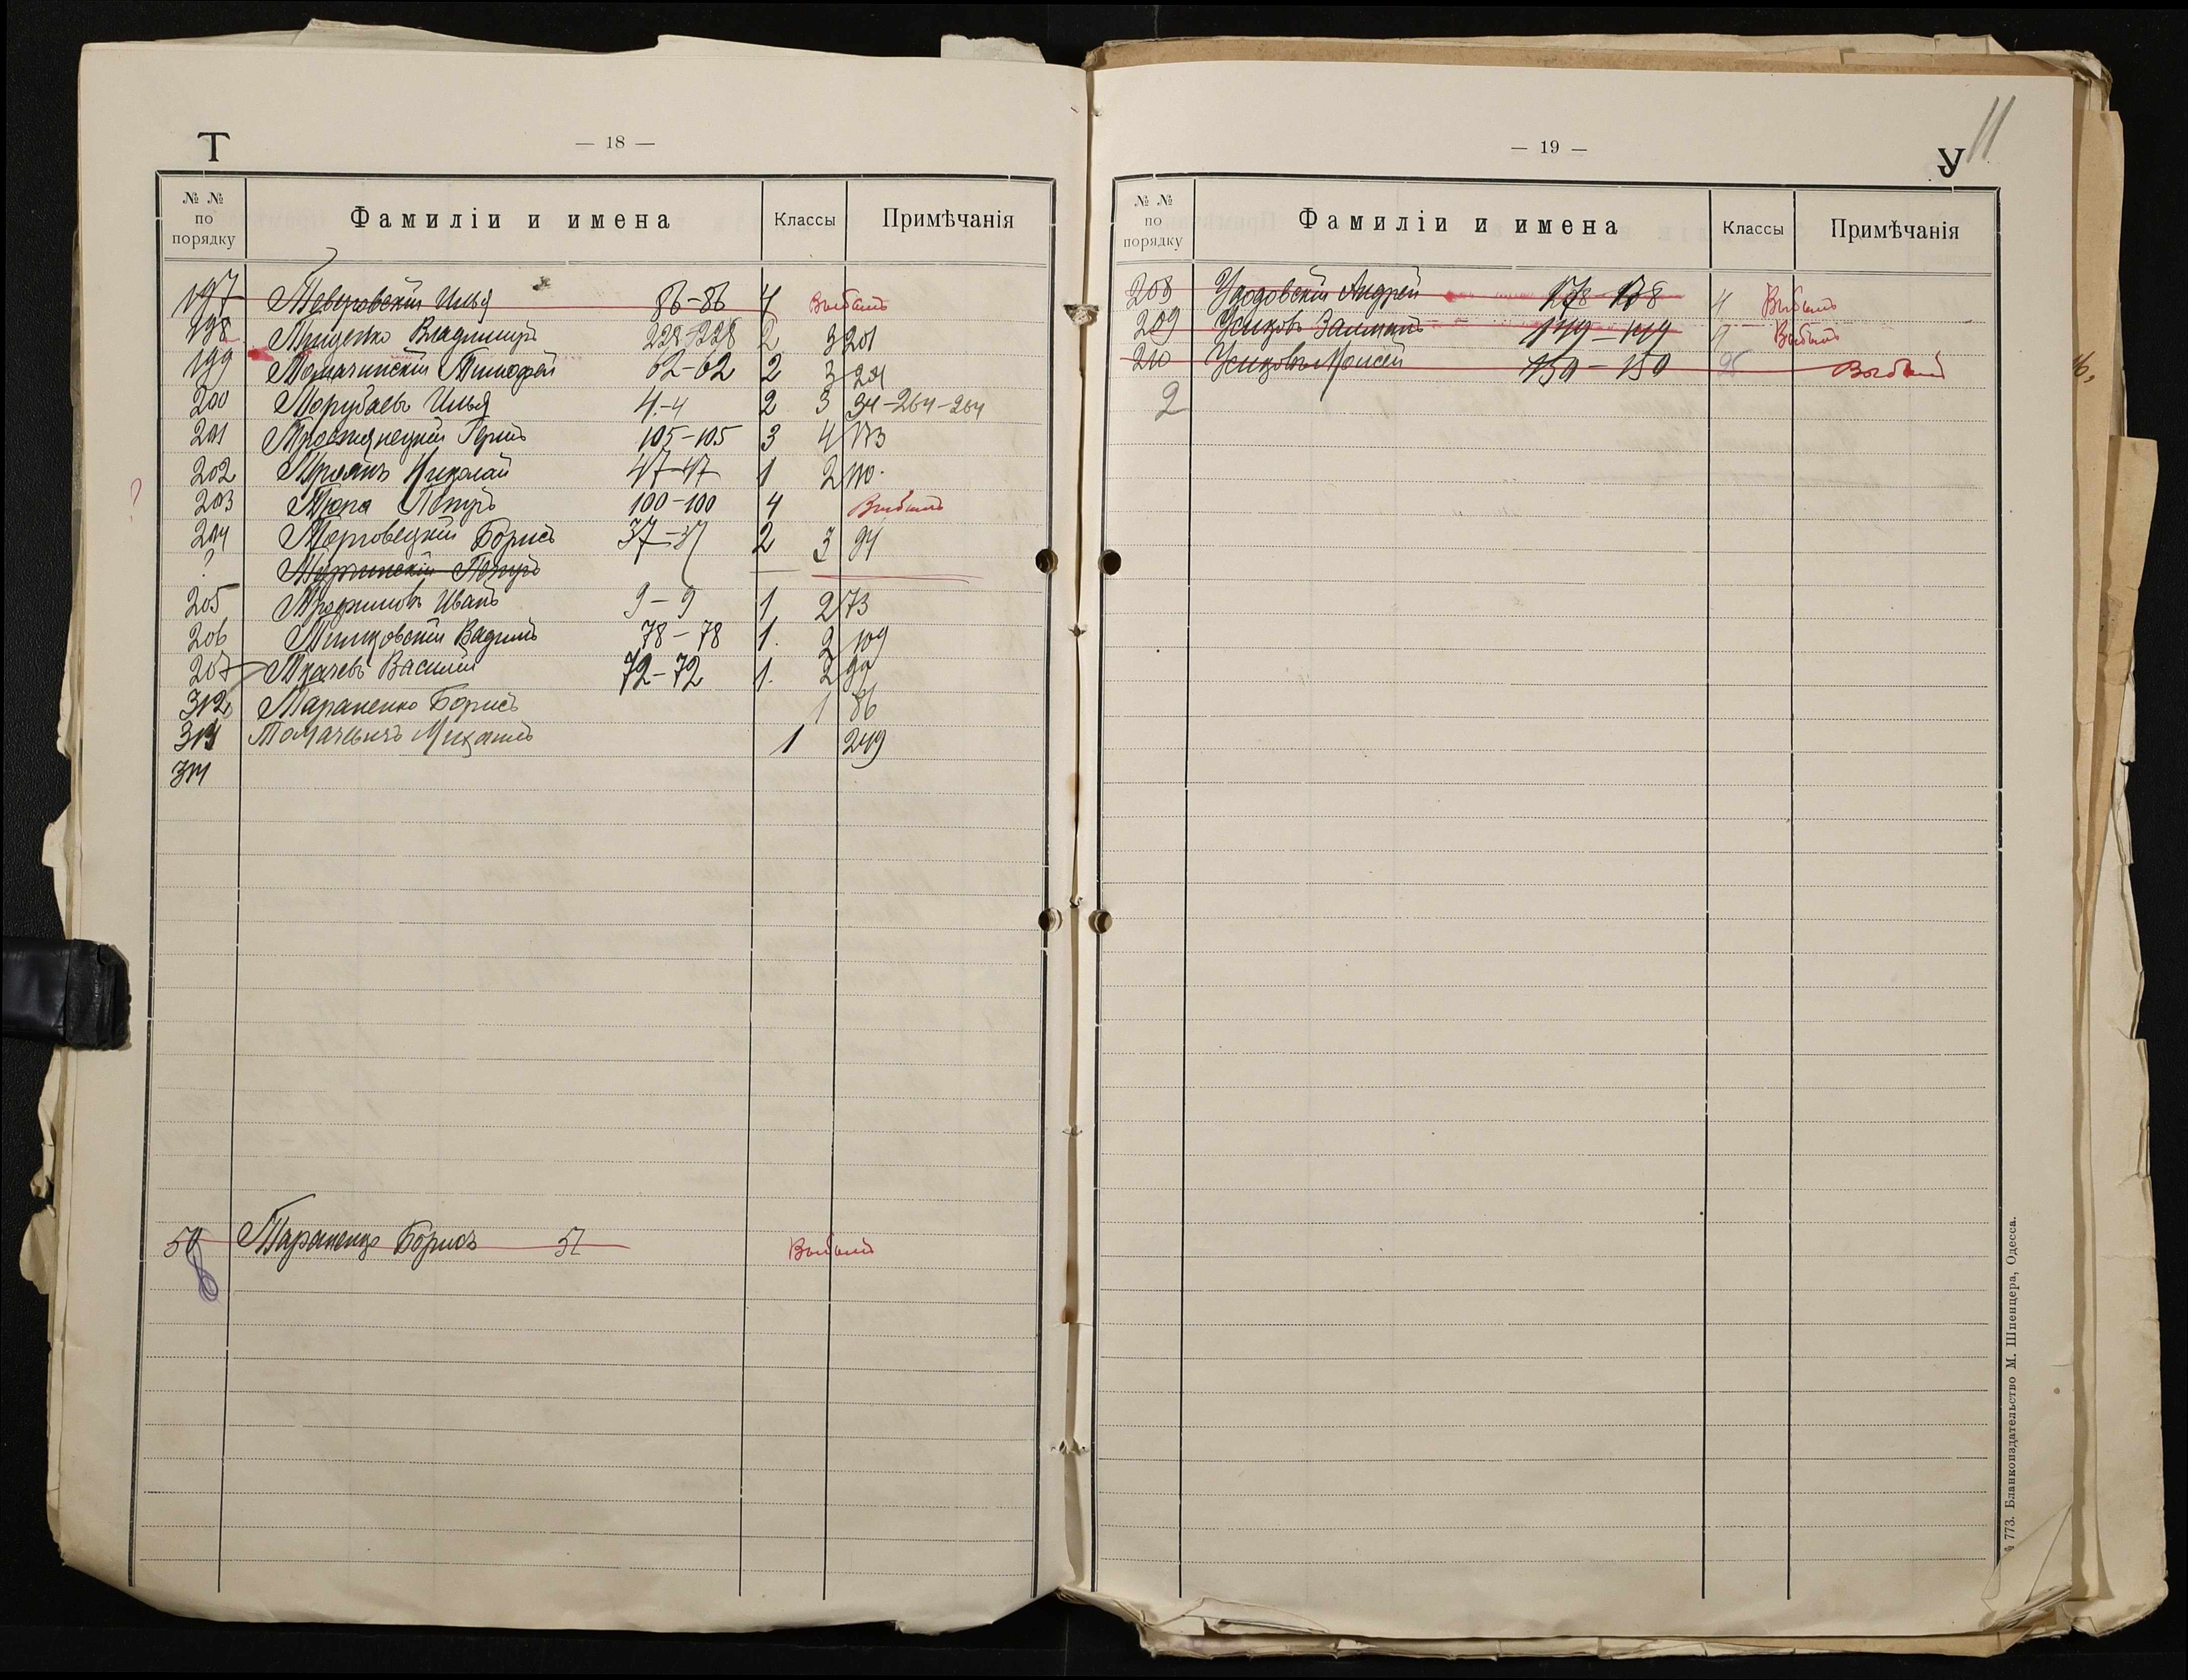 Т
— 18 —
№ № по порядку Фамиліи и имена Классы Примѣчанія
197 Теверовскій Илья 86-86 4 Выбылъ
198 Владиміръ 228-228 2 3 201
199 Тимофей 62-62 2 3
200 Илья 4-4 2 3 34-264-264
201 105-105 3 4 173
202 Троянъ Николай 47-47 1 2 110.
203 Тюпа Петръ 100-100 4 Выбылъ
? 204 Торговецкій Борисъ 37-37 2 3 94
? Петръ
205 Трофимовъ Иванъ 9-9 1 2 73
206 Вадимъ 78-78 1. 2 109
207 Ткачевъ Василій 72-72 1. 2 99
312 Тараненко Борисъ 1 86
Томачевичъ Михаилъ 1 249
314
50 Тараненко Борисъ 51 Выбылъ
8
11
— 19 —
У
№ № по порядку Фамиліи и имена Классы Примѣчанія
208 Удодовскій Андрей 178-178 4 Выбылъ
209 Усиковъ Залманъ 149-149 Выбылъ
210 Усиковъ Моисей 150-150 Выбылъ
2
773. Бланкоиздательство М. Шпенцера, Одесса.